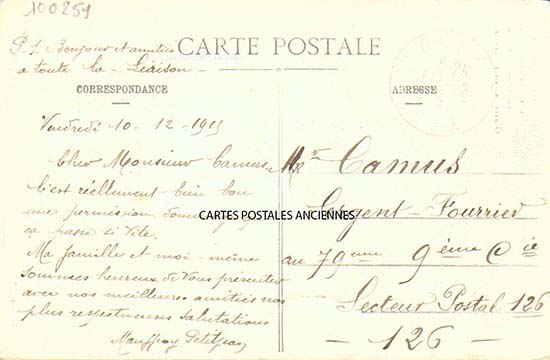 100259
P.S. Bonjour et amitiés
a toute la - Liaison
CARTE POSTALE
CORRESPONDANCE
ADRESSE
Vendredi 10-12-1915
Cher Monsieur Camus
C'est réellement bien bon
une permission,
ça passe si vite.
Ma famille et moi-même
sommes heureux de Vous présenter
avec nos meilleures amitiés nos
plus respectueuses salutations
Petitjean
CARTES POSTALES ANCIENNES
Mr Camus
Sergent-Fourrier
au 79eme 9ème Cie
Secteur Postal 126
- 126 -